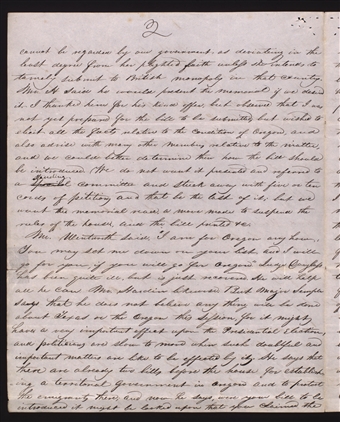 2
cannot be regarded by our government as deviating in the
least degree from her plighted faith unless she intends to
tamely submit to British monopoly in that country
Mr. H said he would present the memorial if we desired
it. I thanked him for his kind offer, but observed that I was
not yet prepared for the bill to be submitted but wished to
elicit all the facts relative to the condition of Oregon, and
also advise with many other members relative to the matter,
and we could better determine then how the bill should
be introduced. We do not want it presented and referred to
a Standing committee and stuck away with five or ten
cords of petitions, and that be the last of it, but we
want the memorial read, a move made to suspend the
rules of the house, and the bill printed &c.
Mr. Wentworth said, I am for Oregon any how,
You may set me down on your list, and I will
go for you if you will go for Oregon.
has been quite ill, but is just recovered He will help
all he can. Mr. Hardin likewise But Major Semple
says that he does not believe any thing will be done
about Texas or the Oregon this Session, for it might
have a very important effect upon the Presidential election
and politicians are slow to move when such doubtful and
important matters are like to be affected by it. He says that
there are already two bills before the house for establish-
ing a territorial Government in Oregon and to protect
the emigrants there, and now he says, were your bill to be
introduced it might be looked upon that you claimed the